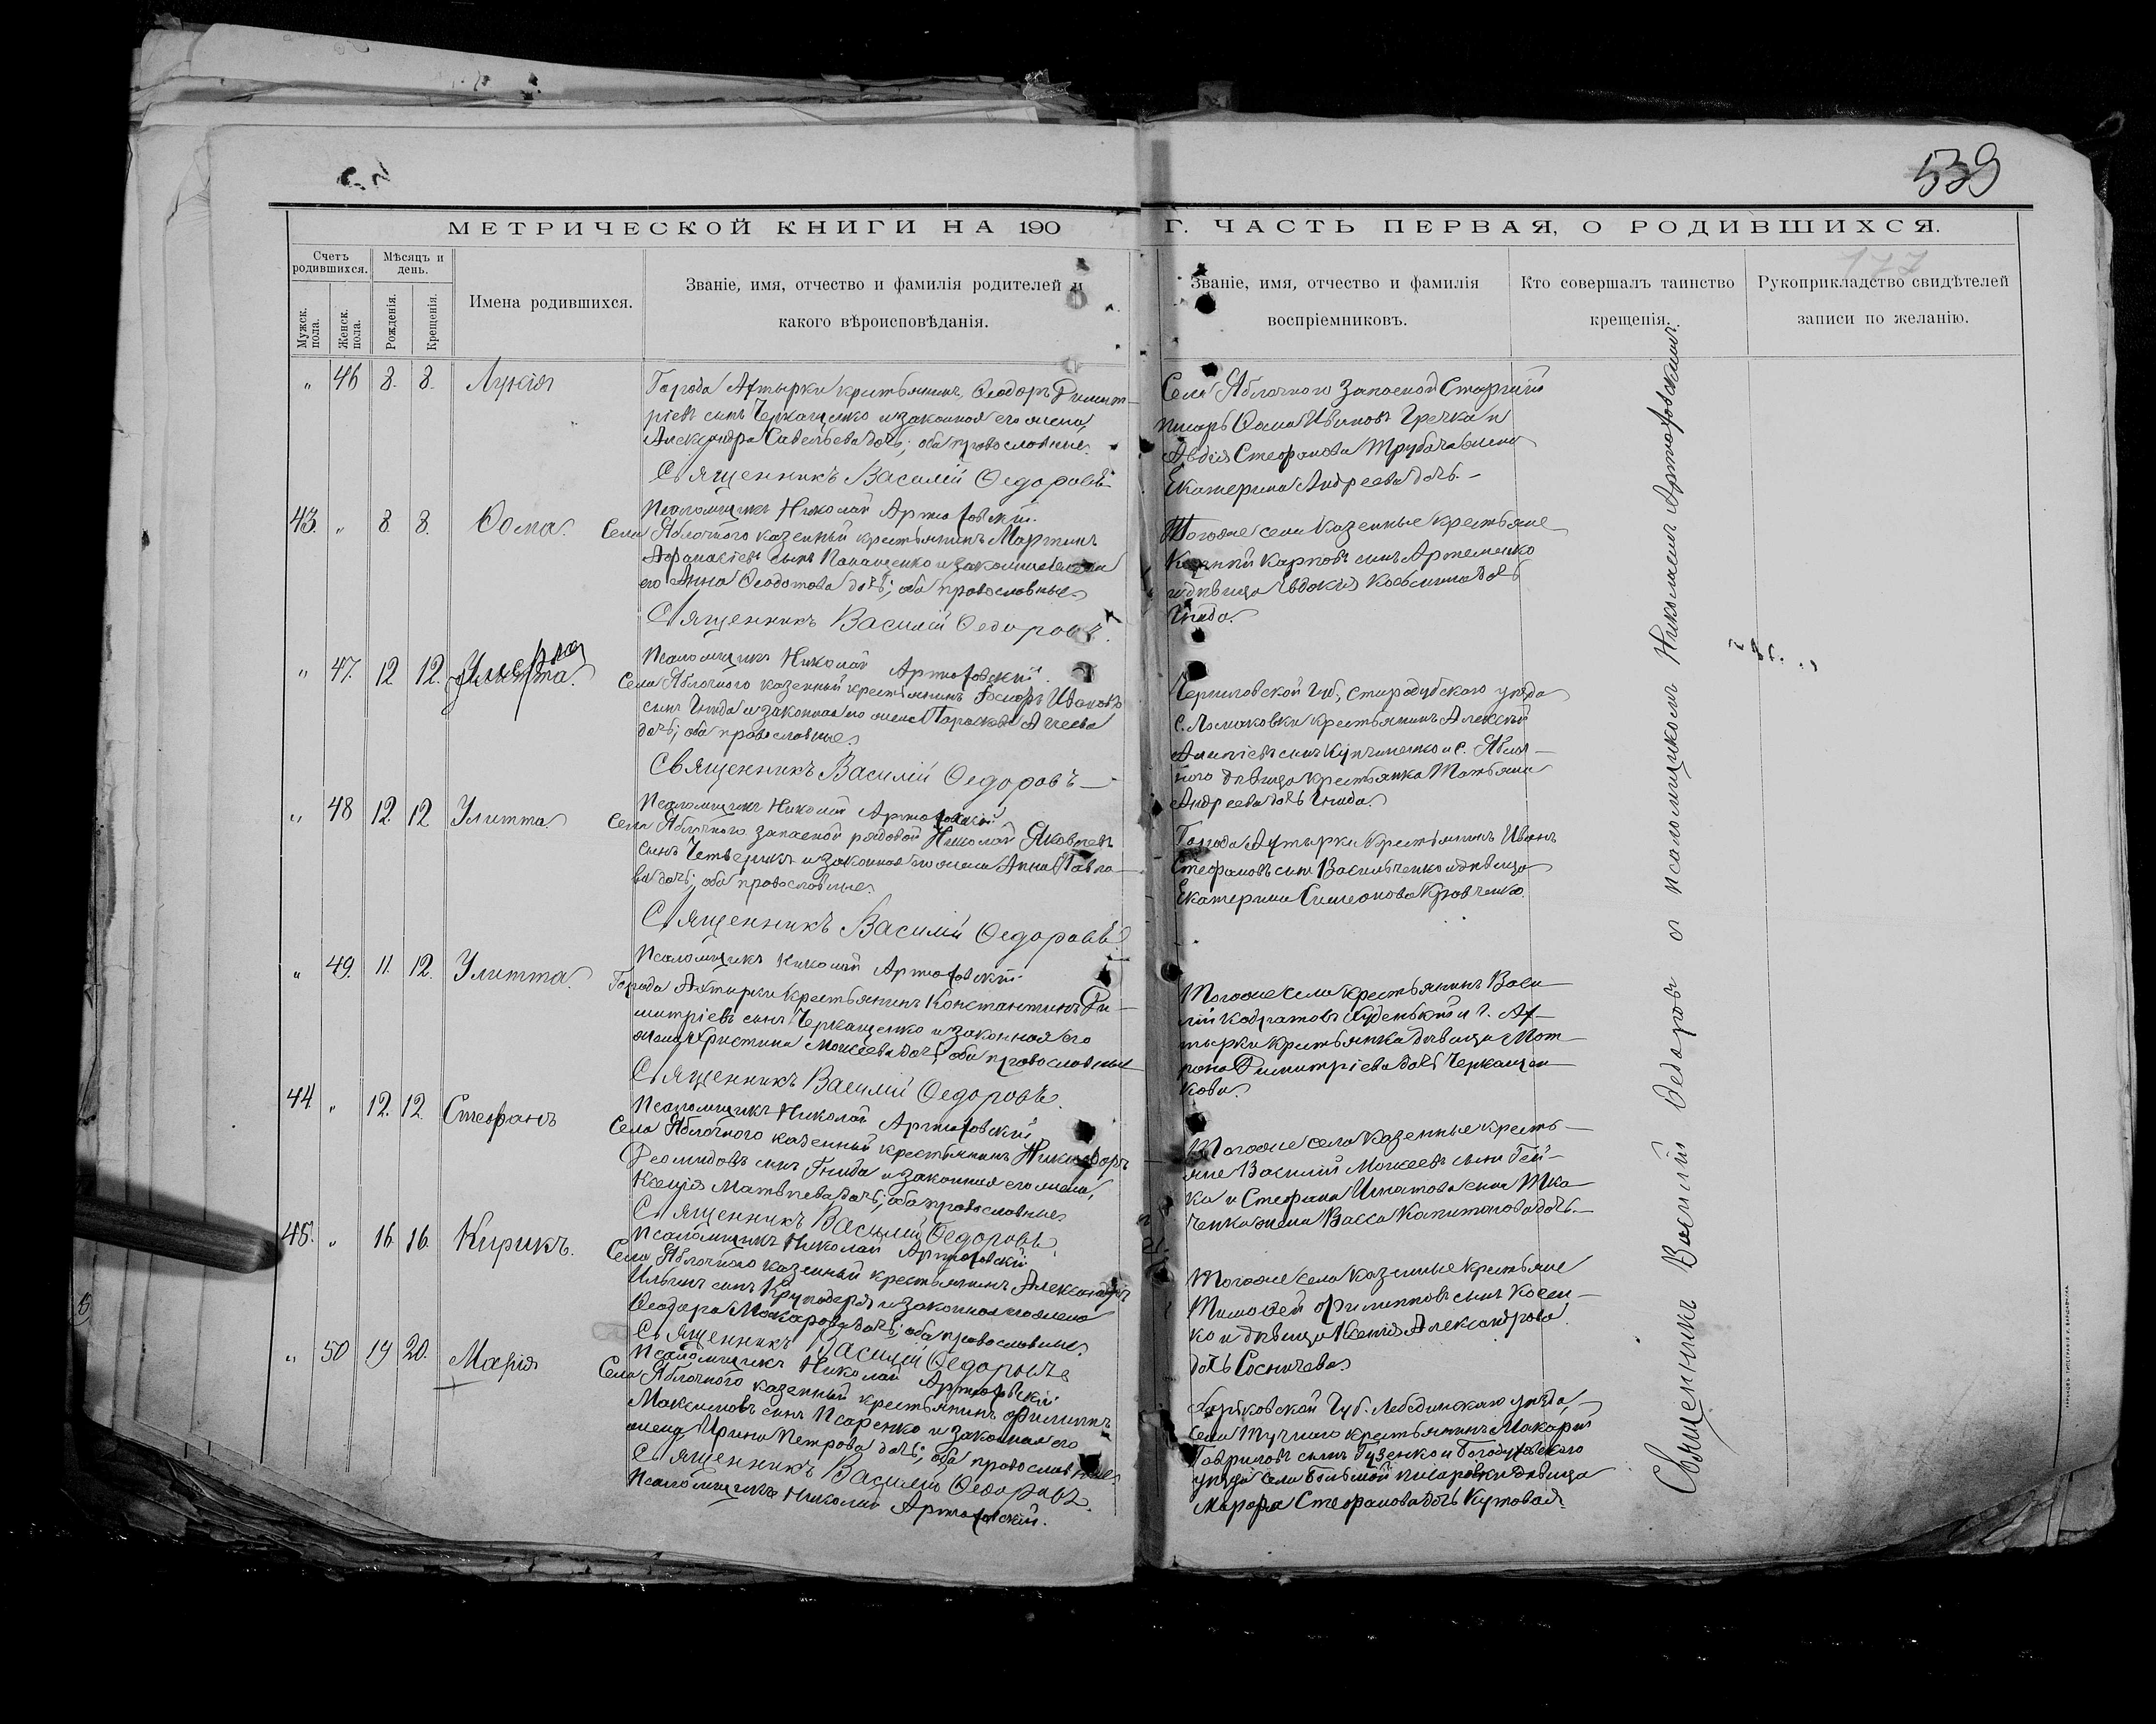 539
177
МЕТРИЧЕСКОЙ КНИГИ НА 190 Г. ЧАСТЬ ПЕРВАЯ, О РОДИВШИХСЯ.
Счетъ родившихся.
Мужск. пола.
Женск. пола.
Мѣсяцъ и день.
Рожденія.
Крещенія.
Имена родившихся.
Званіе, имя, отчество и фамилія родителей и
какого вѣроисповѣданія.
Званіе, имя, отчество и фамилія
воспріемниковъ.
Кто совершалъ таинство
крещенія.
Рукоприкладство свидѣтелей
записи по желанію.
" 46 8. 8. Лукія
Города Ахтырки крестьянинъ Ѳеодоръ Димит-
ріевъ сынъ Черкащенко и законная его жена
Александра Савельева дочь; оба православные.
Священникъ Василій Ѳедоровъ
Псаломщикъ Николай Артюховскій.
Села Яблочного запасной Старшій
писарь Ѳома Ивановъ Гречка и
Авдія Стефанова Трубача жена
Екатерина Андреева дочь.-
43. " 8 8. Ѳома.
Села Яблочного казенный крестьянинъ Мартинъ
Афанасіевъ сынъ Панащенко и законная жена
его Анна Ѳеодотова дочь; оба православные
Священникъ Василій Ѳедоровъ.
Псаломщикъ Николай Артюховскій.
Тогоже села казенные крестьяне
Карповъ сынъ Артеменко
и дѣвица Евдокія Космина дочь
Гнида.
" 47. 12 12.
Села Яблочного казенный крестьянинъ Ивановъ
сынъ Гнида и законная его жена Параскева Агеева
дочь; оба православные.
Священникъ Василій Ѳедоровъ
Псаломщикъ Николай Артюховскій
Черниговской губ., Стародубского уѣзда
с. Ломаковки крестьянинъ Алексѣй
сынъ и с. Яблоч-
ного дѣвица крестьянка Татьяна
Андреева дочь Гнида.
" 48 12 12 Улитта.
Села Яблочного запасной рядовой Николай Яковлевъ
сынъ Четверикъ и законная его жена Анна Павло-
ва дочь; оба православные.
Священникъ Василій Ѳедоровъ.
Псаломщикъ Николай Артюховскій
Города Ахтырки крестьянинъ Иванъ
Стефановъ сынъ Васильченко и дѣвица
Екатерина Симеонова Кравченко.
" 49. 11. 12. Улитта.
Города Ахтырки крестьянинъ Константинъ Ди-
митріевъ сынъ Черкащенко и законная его
жена Христина Моисеева дочь; оба православные
Священникъ Василій Ѳедоровъ.
Псаломщикъ Николай Артюховскій
Тогоже села крестьянинъ Васи-
лій Кодратовъ и г. Ах-
тырки крестьянка дѣвица Мат-
рона Димитріева дочь Черкащен-
кова.
44 " 12. 12. Стефанъ
Села Яблочного казенный крестьянинъ Никифоръ
Діомидовъ сынъ Гнида и законная его жена,
Ксенія Матвѣева дочь; оба православные
Священникъ Василій Ѳедоровъ.
Псаломщикъ Николай Артюховскій
Тогоже села казенные кресть-
яне Василій Моисеевъ сынъ Гей-
ка и Стефана Игнатова сына Тка-
ченка жена Васса Капитонова дочь.-
45. " 16. 16. Кирикъ.
Села Яблочного казенный крестьянинъ Александръ
Ильинъ сынъ Круподеря и законная его жена
Ѳеодора Макарова дочь; оба православные.
Священникъ Василій Ѳедоровъ
Псаломщикъ Николай Артюховскій
Тогоже села казенные крестьяне
Тимофей Филипповъ сынъ Косен-
ко и дѣвица Ксенія Александрова
дочь Сосничева.
" 50 19 20. Марія
Села Яблочного казенный крестьянинъ Филиппъ
Максимовъ сынъ Псаренко и законная его
жена Ирина Петрова дочь; оба православные.
Священникъ Василій Ѳедоровъ.
Псаломщикъ Николай Артюховскій.
Харьковской губ. Лебединского уѣзда,
села Тучного крестьянинъ Макарій
Гавриловъ сынъ Гузенко и Богодуховского
уѣзда села Большой Писаровки дѣвица
Марфа Стефанова дочь Кутовая.
Священникъ Василій Ѳедоровъ съ псаломщикомъ Николаемъ Артюховскимъ.